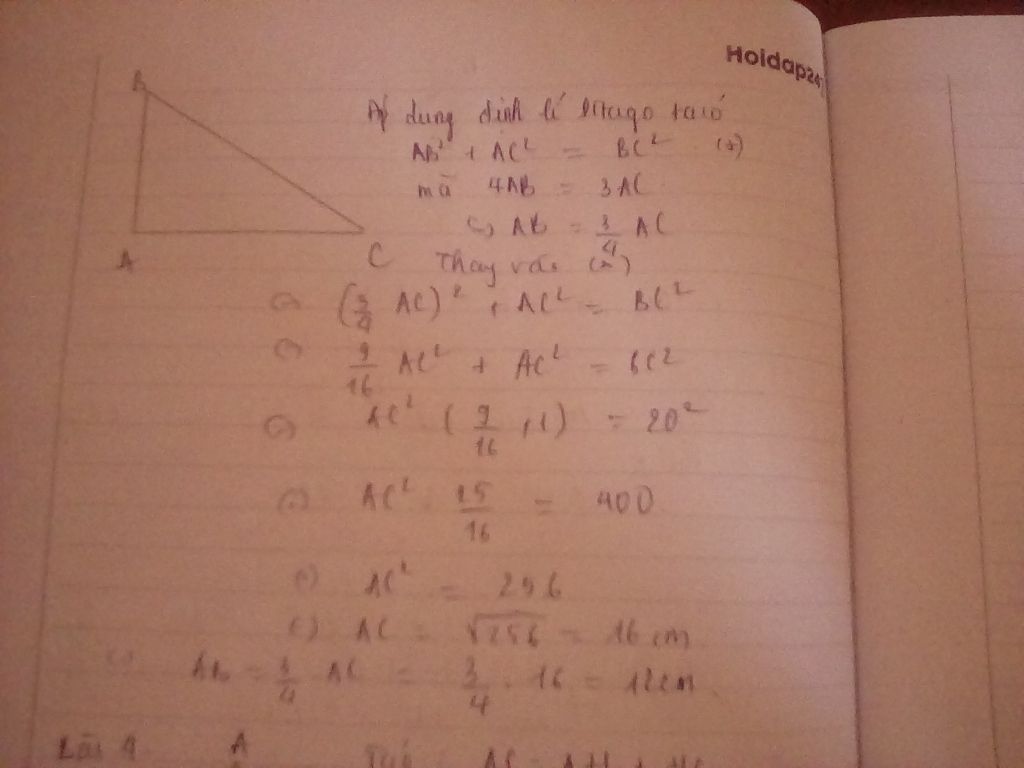 Hoidap247
B
Áp dụng định lí Pitago ta có
AB² + AC² = BC² (*)
mà 4AB = 3AC
=> AB = 3/4 AC
A
C
Thay vào (*)
<=> (3/4 AC)² + AC² = BC²
<=> 9/16 AC² + AC² = BC²
<=> AC² . (9/16 + 1) = 20²
<=> AC² . 25/16 = 400
<=> AC² = 256
<=> AC = √256 = 16 cm
=> AB = 3/4 AC = 3/4 . 16 = 12cm
Bài 4
A